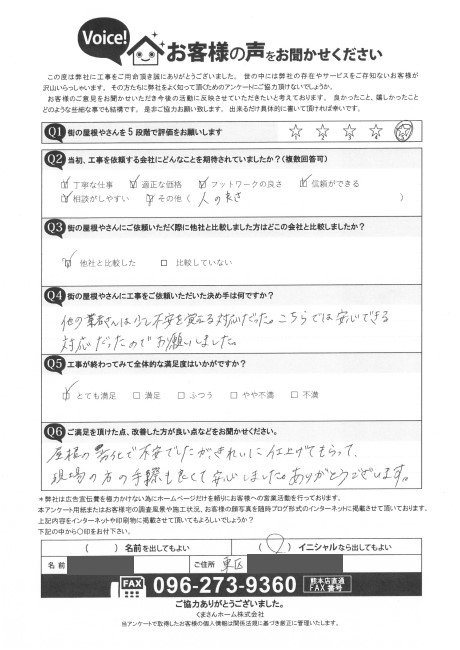 Voice! お客様の声をお聞かせください
この度は弊社に工事をご用命頂き誠にありがとうございました。世の中には弊社の存在やサービスをご存知ないお客様が
沢山いらっしゃいます。その方たちに弊社をよく知って頂くためのアンケートにご協力頂けないでしょうか。
お客様のご意見をお聞かせいただき今後の活動に反映させていただきたいと考えております。良かったこと、嬉しかったこと
どのような些細な事でも結構です。是非ご協力お願い致します。出来るだけ具体的に書いて頂ければ幸いです。
Q1 街の屋根やさんを5段階で評価をお願いします ☆ ☆ ☆ ☆ ☆
Q2 当初、工事を依頼する会社にどんなことを期待されていましたか?(複数回答可)
☑ 丁寧な仕事 ☑ 適正な価格 ☑ フットワークの良さ ☑ 信頼ができる
☑ 相談がしやすい ☑ その他(人の良さ)
Q3 街の屋根やさんにご依頼いただく際に他社と比較しました方はどこの会社と比較しましたか?
☑ 他社と比較した □ 比較していない
Q4 街の屋根やさんに工事をご依頼いただいた決め手は何ですか?
他の業者さんは少し不安を覚える対応だった。こちらでは安心できる
対応だったのでお願いしました。
Q5 工事が終わってみて全体的な満足度はいかがですか?
☑ とても満足 □ 満足 □ ふつう □ やや不満 □ 不満
Q6 ご満足を頂けた点、改善した方が良い点などをお聞かせください。
屋根の劣化で不安でしたが、きれいに仕上げてもらって、
現場の方の手際も良くて安心しました。ありがとうございます。
*弊社は広告宣伝費を極力かけない為にホームページだけを頼りにお客様への営業活動を行っております。
本アンケート用紙またはお客様宅の調査風景や施工状況、お客様の顔写真を随時ブログ形式のインターネットに掲載させて頂いております。
上記内容をインターネットや印刷物に掲載させて頂いてもよろしいでしょうか?
下記の中から〇印をお付下さい。
( ) 名前を出してもよい (〇) イニシャルなら出してもよい
名前 ご住所 東区
FAX 096-273-9360 熊本店直通 FAX 番号
ご協力ありがとうございました。
くまさんホーム株式会社
当アンケートで取得したお客様の個人情報は関係法規に基づき厳正に管理いたします。